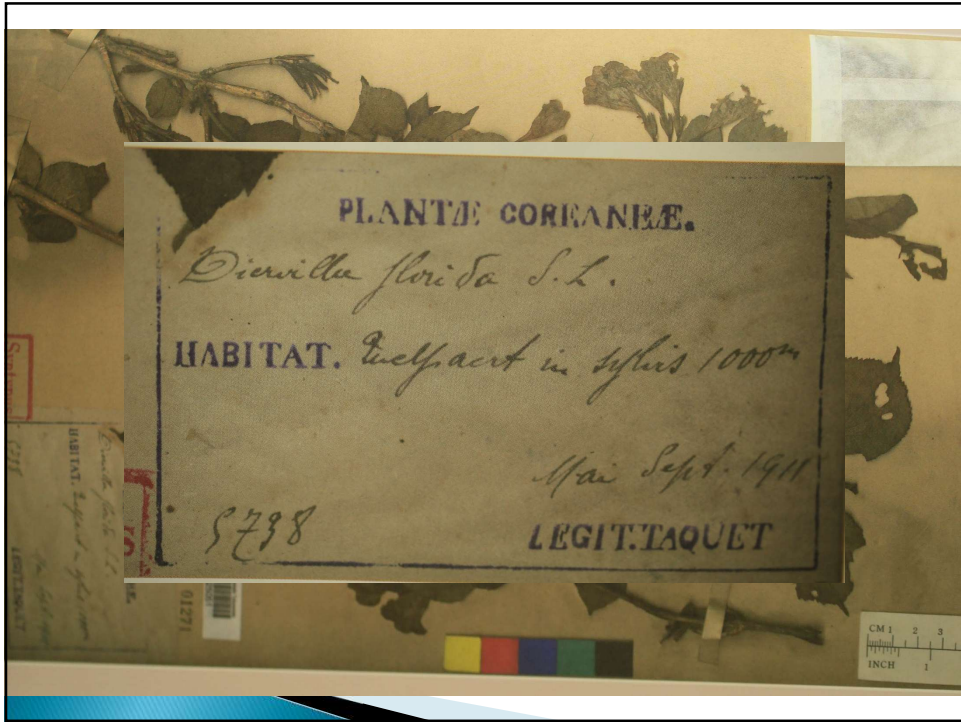 PLANTÆ COREANEÆ.
Diervilla florida S. Z.
HABITAT. Quelpaert in sylvis 1000m
Mai Sept. 1911
5738
LEGIT. TAQUET
HABITAT.
01271
CM 1 2 3
INCH 1